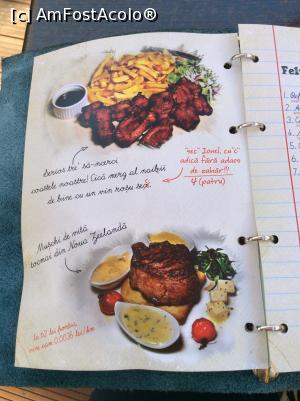 [c] AmFostAcolo®
Serios tre' să-ncerci
coastele noastre! Cică merg al naibii
de bine cu un vin roșu sec.
"sec" Ionel, cu "c"
adică fără adaos
de zahăr!!!
4 (patru)
Mușchi de vită
tocmai din Nouă Zeelandă
la 62 lei porția,
vine cam 0,0036 lei/km
Fel
1.
2.
3.
4.
5.
6.
7.